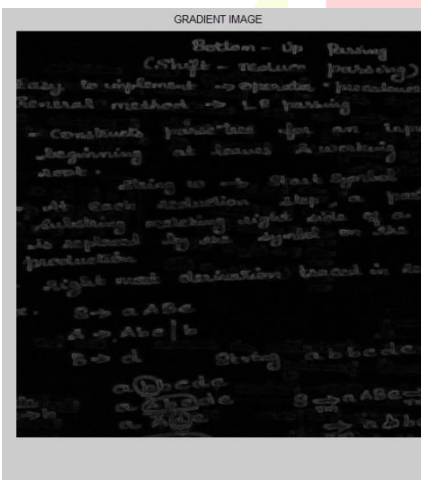 GRADIENT IMAGE
Bottom - Up Parsing
(Shift - reduce parsing)
Easy to implement → operator precedence
General method → L R parsing
- Constructs parse-tree for an inpu
beginning at leaves & working
root.
String w → Start Symbol
At each reduction step, a
substring matching right side of a
is replaced by the symbol on the
production
Right most derivation traced in
S → a A B e
A → A b c | b
B → d String a b b c d e
a b b c d e
a A b c d e S ⇒ a A B e
a A d e